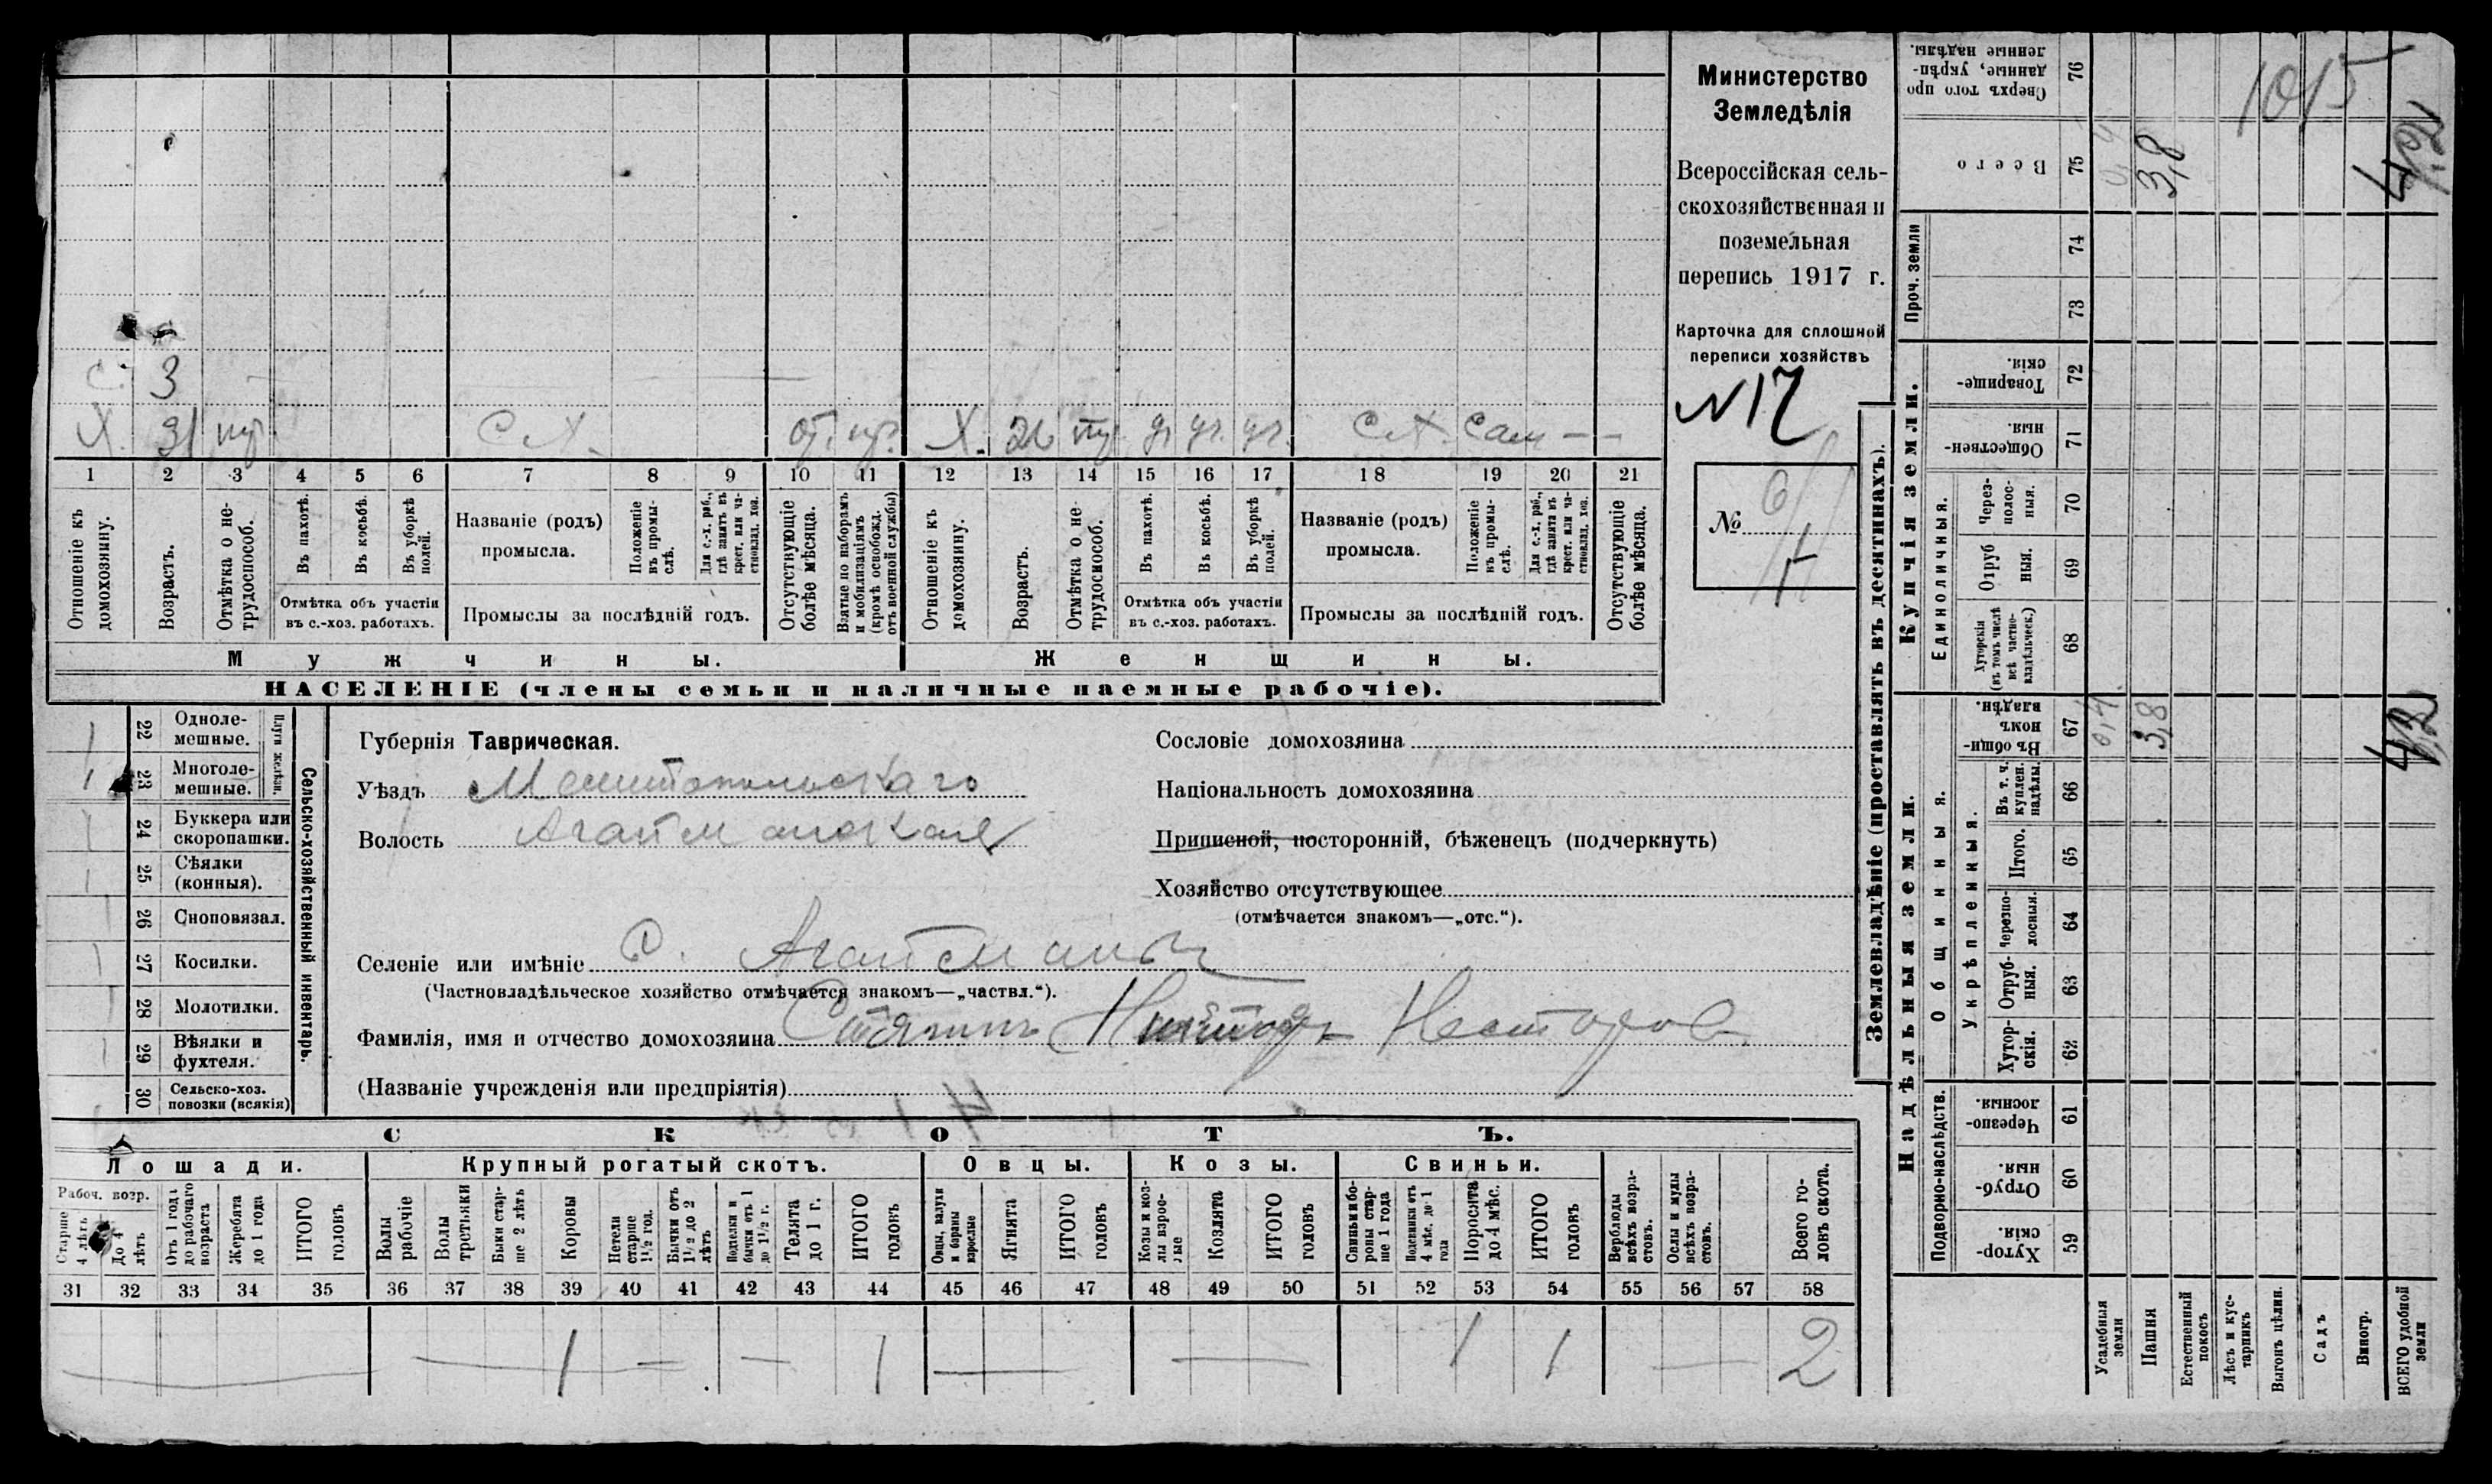 Министерство
Земледѣлія
Всероссійская сель-
скохозяйственная и
поземельная
перепись 1917 г.
Карточка для сплошной
переписи хозяйствъ
N 17
№
С. 3
Х. 31 С Х. Х. 26 С Х. Сам — —
1 2 3 4 5 6 7 8 9 10 11 12 13 14 15 16 17 18 19 20 21
Отношеніе къ домохозяину.
Возрастъ.
Отмѣтка о не-трудоспособ.
Въ пахотѣ.
Въ косьбѣ.
Въ уборкѣ полей.
Отмѣтка объ участіи
въ с.-хоз. работахъ.
Названіе (родъ)
промысла.
Положеніе въ промы-слѣ.
Для с.-х. раб., гдѣ занятъ въ крест. или ча-стновлад. хоз.
Промыслы за послѣдній годъ.
Отсутствующіе болѣе мѣсяца.
Взятые по наборамъ и мобилизаціямъ (кромѣ освобожд. отъ военной службы)
Отношеніе къ домохозяину.
Возрастъ.
Отмѣтка о не-трудоспособ.
Въ пахотѣ.
Въ косьбѣ.
Въ уборкѣ полей.
Отмѣтка объ участіи
въ с.-хоз. работахъ.
Названіе (родъ)
промысла.
Положеніе въ промы-слѣ.
Для с.-х. раб., гдѣ занята въ крест. или ча-стновлад. хоз.
Промыслы за послѣдній годъ.
Отсутствующіе болѣе мѣсяца.
Мужчины.
Женщины.
НАСЕЛЕНІЕ (члены семьи и наличные наемные рабочіе).
22 Одноле-
мешные.
23 Многоле-
мешные.
Плуги желѣзн.
24 Буккера или
скоропашки.
25 Сѣялки
(конныя).
26 Сноповязал.
27 Косилки.
28 Молотилки.
29 Вѣялки и
фухтеля.
30 Сельско-хоз.
повозки (всякія)
Сельско-хозяйственный инвентарь.
Губернія Таврическая.
Уѣздъ Мелитопольскаго
Волость Агайманская
Сословіе домохозяина
Національность домохозяина
Приписной, посторонній, бѣженецъ (подчеркнуть)
Хозяйство отсутствующее
(отмѣчается знакомъ—„отс.“).
Селеніе или имѣніе С. Агайманы
(Частновладѣльческое хозяйство отмѣчается знакомъ—„частвл.“).
Фамилія, имя и отчество домохозяина Нестеров
(Названіе учрежденія или предпріятія)
СКОТЪ.
Лошади.
Крупный рогатый скотъ.
Овцы.
Козы.
Свиньи.
Рабоч. возр.
Старше 4 лѣтъ
До 4 лѣтъ
Отъ 1 года до рабочаго возраста
Жеребята до 1 года
ИТОГО головъ
Волы рабочіе
Волы третьяки
Быки стар-ше 2 лѣтъ
Коровы
Нетели старше 1½ год.
Бычки отъ 1½ до 2 лѣтъ
Телки и бычки отъ 1 до 1½ г.
Телята до 1 г.
ИТОГО головъ
Овцы, валухи и бараны взрослые
Ягнята
ИТОГО головъ
Козы и коз-лы взрос-лые
Козлята
ИТОГО головъ
Свиньи и бо-ровы стар-ше 1 года
Подсвинки отъ 4 мѣс. до 1 года
Поросята до 4 мѣс.
ИТОГО головъ
Верблюды всѣхъ возра-стовъ.
Ослы и мулы всѣхъ возра-стовъ.
Всего го-ловъ скота.
31 32 33 34 35 36 37 38 39 40 41 42 43 44 45 46 47 48 49 50 51 52 53 54 55 56 57 58
1 1 1 1 2
Землевладѣніе (проставлять въ десятинахъ).
Сверхъ того про
данные, укрѣп-
ленные надѣлы.
76
1015
Всего
75
3,8
Проч. земли
74
73
Купчія земли.
Товарище-
скія.
72
Обществен-
ныя.
71
Единоличныя.
Черезполос-ныя.
70
Отруб ныя.
69
Хуторскія (въ томъ числѣ всѣ частно-владѣльческ.)
68
Надѣльныя земли.
Общинныя.
Въ общи-
номъ
владѣн.
67
0,4
3,8
Укрѣпленныя.
Въ т. ч. куплен. надѣлы.
66
Итого.
65
Черезпо-лосныя.
64
Отруб-ныя.
63
Хутор-скія.
62
Подворно-наслѣдств.
Черезпо-
лосныя.
61
Отруб-
ныя.
60
Хутор-
скія.
59
Усадебныя земли
Пашня
Естественный покосъ
Лѣсъ и кус-тарникъ
Выгонъ цѣлин.
Садъ
Виногр.
ВСЕГО удобной земли